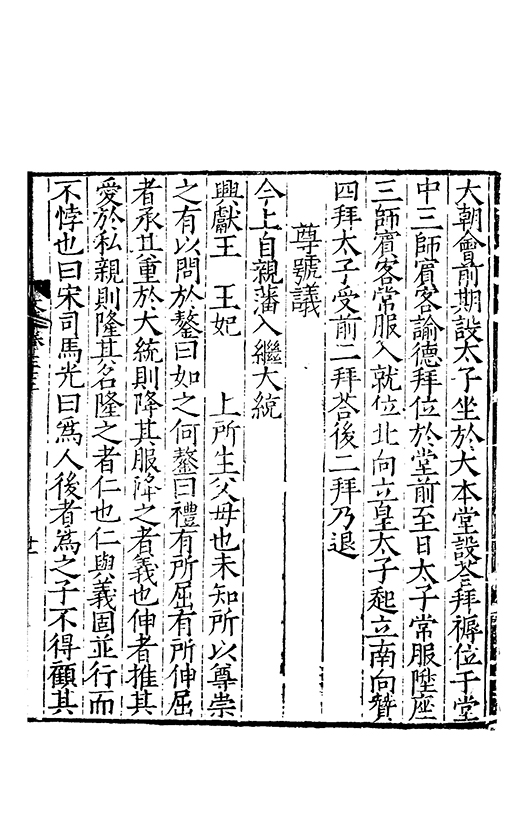 大朝會前期設太子坐於大本堂設荅拜褥位于堂
中三師賓客諭德拜位於堂前至日太子常服陞座
三師賓客常服入就位北向立皇太子起立南向贊
四拜太子受前二拜荅後二拜乃退
尊號議
今上自親藩入繼大統
興獻王　王妃　上所生父母也未知所以尊崇
之有以問於鏊曰如之何鏊曰禮有所屈有所伸屈
者承其重於大統則降其服降之者義也伸者推其
愛於私親則隆其名隆之者仁也仁與義固並行而
不悖也曰宋司馬光曰爲人後者爲之子不得顧其